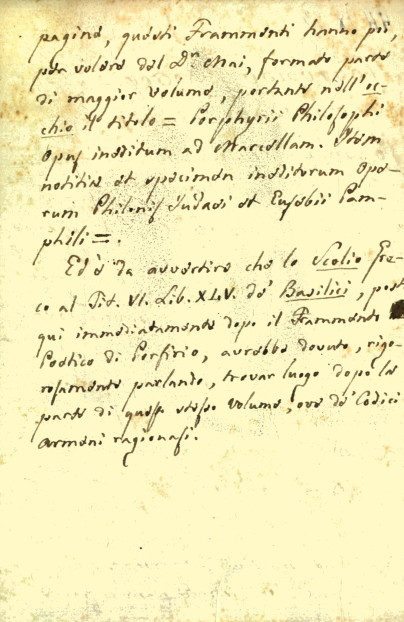 pagine, questi Frammenti hanno poi,
per volere del Dr. Mai, formato parte
di maggior volume, portante nell'oc-
chio il titolo = Porphyrii Philosophi
Opus ineditum ad Marcellam. Item
notitia et specimen ineditorum Ope-
rum Philonis Judaei et Eusebii Pam-
phili =.
Ed è da avvertire che lo Scolio Gre-
co al Tit. VI. Lib. XLV. de' Basilici, post
qui immediatamente dopo il Frammento
Poetico di Porfirio, avrebbe dovuto, rigo-
rosamente parlando, trovar luogo dopo la
parte di questo stesso volume, ove de' Codici
armeni ragionasi.